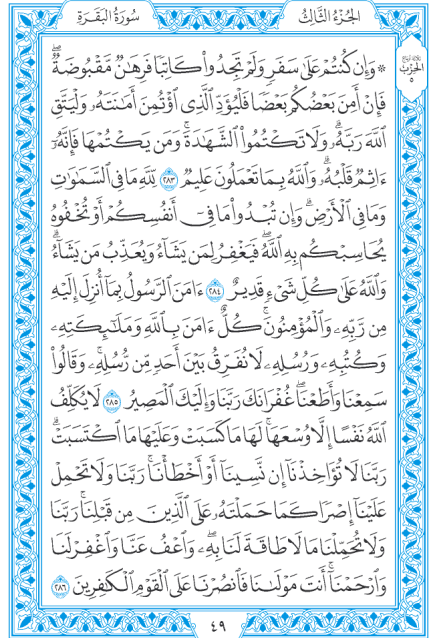 الجُزْءُ الثَّالِثُ
سُورَةُ البَقَرَةِ
الحِزْبُ
٥
۞ وَإِن كُنتُمْ عَلَىٰ سَفَرٍ وَلَمْ تَجِدُوا۟ كَاتِبًا فَرِهَٰنٌ مَّقْبُوضَةٌ ۖ
فَإِنْ أَمِنَ بَعْضُكُم بَعْضًا فَلْيُؤَدِّ الَّذِى اؤْتُمِنَ أَمَٰنَتَهُۥ وَلْيَتَّقِ
اللَّهَ رَبَّهُۥ ۗ وَلَا تَكْتُمُوا۟ الشَّهَٰدَةَ ۚ وَمَن يَكْتُمْهَا فَإِنَّهُۥٓ
ءَاثِمٌ قَلْبُهُۥ ۗ وَاللَّهُ بِمَا تَعْمَلُونَ عَلِيمٌ ٢٨٣ لِّلَّهِ مَا فِى السَّمَٰوَٰتِ
وَمَا فِى الْأَرْضِ ۗ وَإِن تُبْدُوا۟ مَا فِىٓ أَنفُسِكُمْ أَوْ تُخْفُوهُ
يُحَاسِبْكُم بِهِ اللَّهُ ۖ فَيَغْفِرُ لِمَن يَشَآءُ وَيُعَذِّبُ مَن يَشَآءُ ۗ
وَاللَّهُ عَلَىٰ كُلِّ شَىْءٍ قَدِيرٌ ٢٨٤ ءَامَنَ الرَّسُولُ بِمَآ أُنزِلَ إِلَيْهِ
مِن رَّبِّهِۦ وَالْمُؤْمِنُونَ ۚ كُلٌّ ءَامَنَ بِاللَّهِ وَمَلَٰٓئِكَتِهِۦ
وَكُتُبِهِۦ وَرُسُلِهِۦ لَا نُفَرِّقُ بَيْنَ أَحَدٍ مِّن رُّسُلِهِۦ ۚ وَقَالُوا۟
سَمِعْنَا وَأَطَعْنَا ۖ غُفْرَانَكَ رَبَّنَا وَإِلَيْكَ الْمَصِيرُ ٢٨٥ لَا يُكَلِّفُ
اللَّهُ نَفْسًا إِلَّا وُسْعَهَا ۚ لَهَا مَا كَسَبَتْ وَعَلَيْهَا مَا اكْتَسَبَتْ ۗ
رَبَّنَا لَا تُؤَاخِذْنَآ إِن نَّسِينَآ أَوْ أَخْطَأْنَا ۚ رَبَّنَا وَلَا تَحْمِلْ
عَلَيْنَآ إِصْرًا كَمَا حَمَلْتَهُۥ عَلَى الَّذِينَ مِن قَبْلِنَا ۚ رَبَّنَا
وَلَا تُحَمِّلْنَا مَا لَا طَاقَةَ لَنَا بِهِۦ ۖ وَاعْفُ عَنَّا وَاغْفِرْ لَنَا
وَارْحَمْنَآ ۚ أَنتَ مَوْلَىٰنَا فَانصُرْنَا عَلَى الْقَوْمِ الْكَٰفِرِينَ ٢٨٦
٤٩